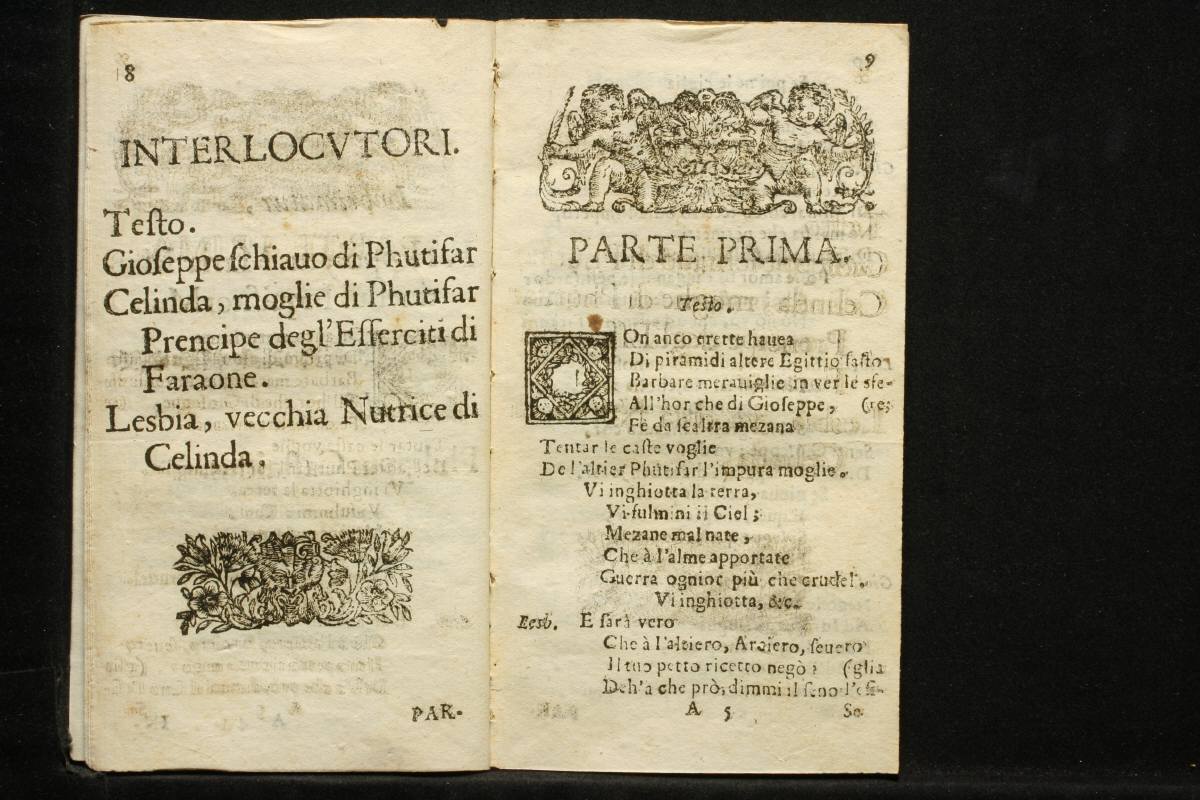 8
INTERLOCVTORI.
Teſto.
Gioſeppe ſchiauo di Phutifar
Celinda, moglie di Phutifar
Prencipe degl'Eſſerciti di
Faraone.
Lesbia, vecchia Nutrice di
Celinda.
PAR-
9
PARTE PRIMA.
Teſto.
On anco erette hauea
Di piramidi altere Egittio faſto
Barbare merauiglie in ver le sfe-
All'hor che di Gioſeppe, (re;
Fè da ſcaltra mezana
Tentar le caſte voglie
De l'altier Phutifar l'impura moglie.
Vi inghiotta la terra,
Vi fulmini il Ciel;
Mezane mal nate,
Che à l'alme apportate
Guerra ognior più che crudel.
Vi inghiotta, &c.
Lesb. E ſarà vero
Che à l'altiero, ſeuero
Il tuo petto ricetto negò? (glia
che prò, dimmi il ſeno
A 5 Se